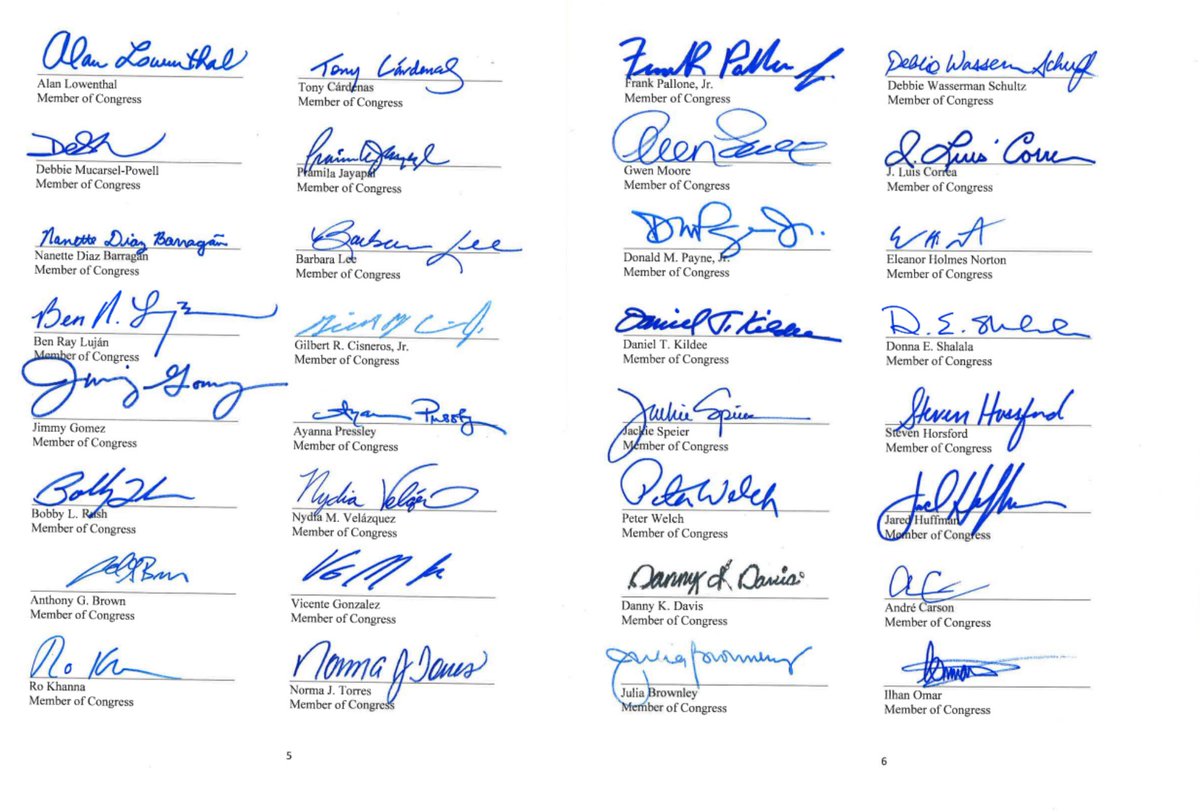 Alan Lowenthal
Alan Lowenthal
Member of Congress
Tony Cárdenas
Tony Cárdenas
Member of Congress
Debbie Mucarsel-Powell
Member of Congress
Pramila Jayapal
Member of Congress
Nanette Diaz Barragán
Nanette Diaz Barragán
Member of Congress
Barbara Lee
Barbara Lee
Member of Congress
Ben R.
Ben Ray Luján
Member of Congress
Gilbert R. Cisneros, Jr.
Member of Congress
Jimmy Gomez
Jimmy Gomez
Member of Congress
Ayanna Pressley
Member of Congress
Bobby L. Rush
Member of Congress
Nydia
Nydia M. Velázquez
Member of Congress
Anthony G. Brown
Member of Congress
Vicente Gonzalez
Member of Congress
Ro
Ro Khanna
Member of Congress
Norma J Torres
Norma J. Torres
Member of Congress
5
Frank Pallone Jr.
Frank Pallone, Jr.
Member of Congress
Debbie Wasserman Schultz
Debbie Wasserman Schultz
Member of Congress
Gwen Moore
Member of Congress
J. Luis Correa
J. Luis Correa
Member of Congress
Donald M. Payne, Jr.
Member of Congress
Eleanor Holmes Norton
Member of Congress
Daniel T. Kildee
Daniel T. Kildee
Member of Congress
D. E. Shalala
Donna E. Shalala
Member of Congress
Jackie Speier
Jackie Speier
Member of Congress
Steven Horsford
Steven Horsford
Member of Congress
Peter Welch
Peter Welch
Member of Congress
Jared Huffman
Jared Huffman
Member of Congress
Danny K. Davis
Danny K. Davis
Member of Congress
André Carson
Member of Congress
Julia Brownley
Julia Brownley
Member of Congress
Ilhan Omar
Member of Congress
6